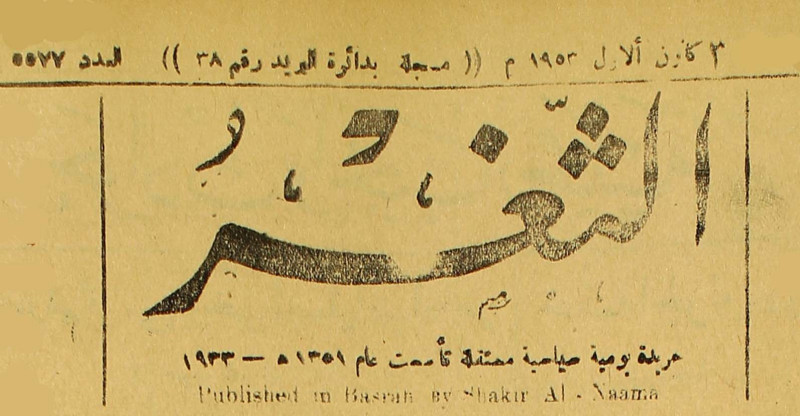 ٣ كانون ألاول ١٩٥٣ م (( مسجلة بدائرة البريد رقم ٣٨ )) العدد ٥٥٧٧
الثَّغْرُ
جريدة يومية سياسية مستقلة تأسست عام ١٣٥١ ه — ١٩٣٣
Published in Basrah by Shakir Al - Naama